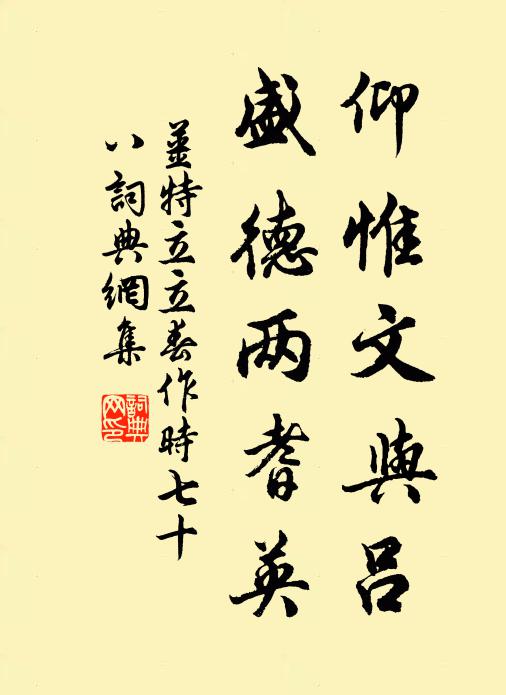 仰惟文與呂
盛德两耆英
姜特立立春作時七十
八詞典網集
詞典
网印